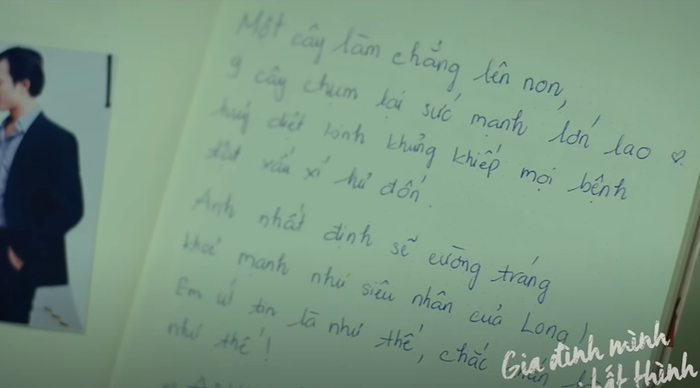 Một cây làm chẳng lên non,
9 cây chụm lại sức mạnh lớn lao ♡
huỷ diệt kinh khủng khiếp mọi bệnh
tật xấu xí hư đốn.
Anh nhất định sẽ cường tráng
khoẻ mạnh như siêu nhân của Long!
Em út tin là như thế, chắc
như thế!
Gia đình mình
bất thình